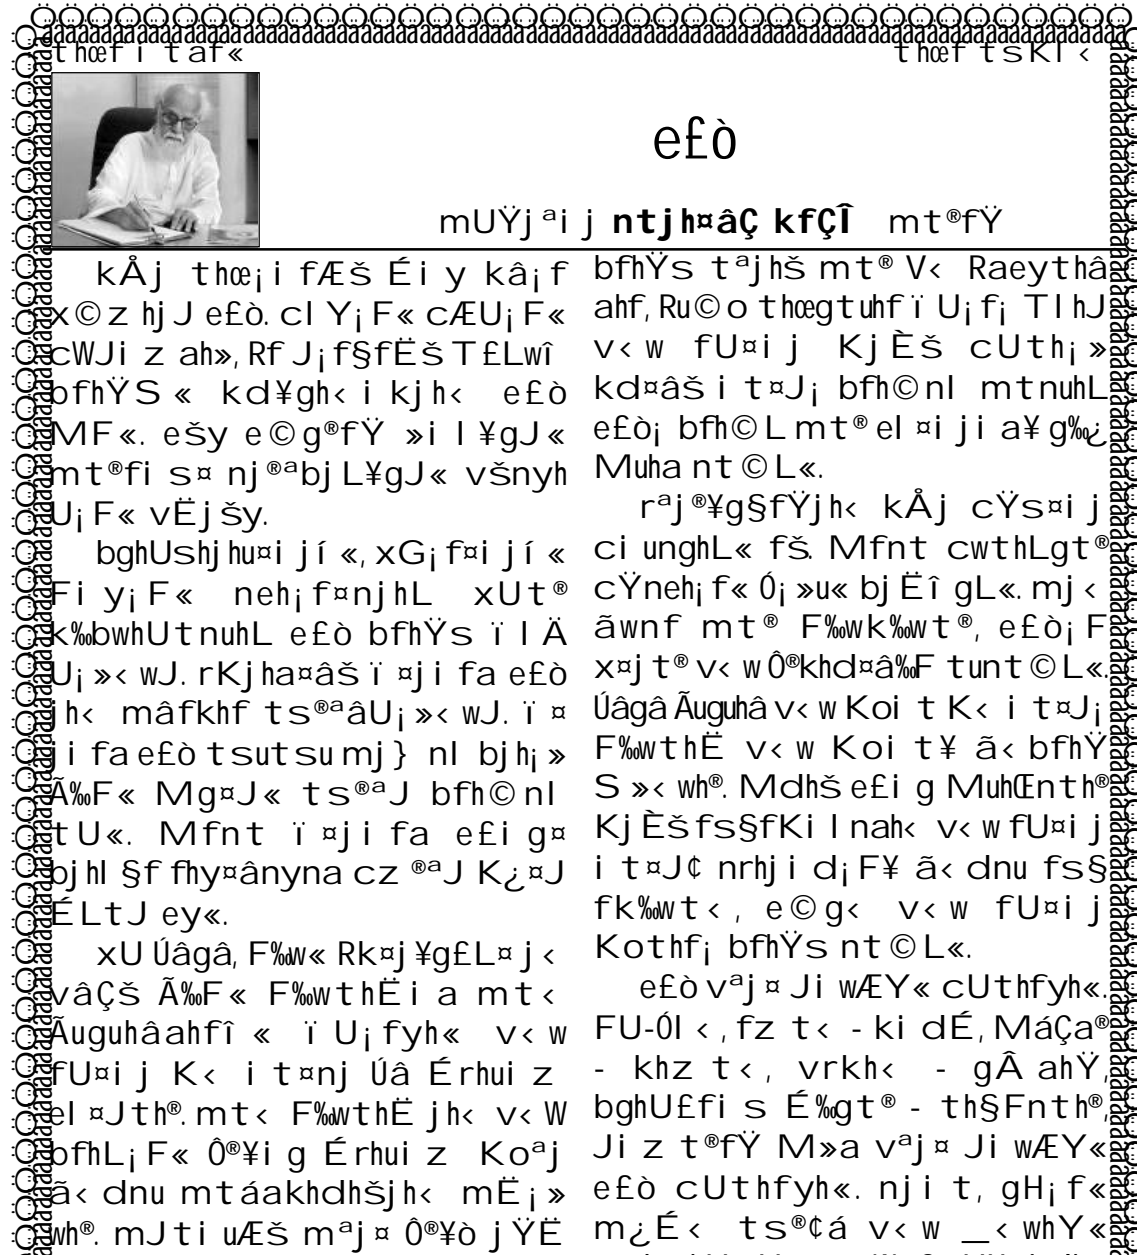 thœfi taf« thœf tsKl <
e£ò
mUŸjªij ntjh¤âÇ kfÇÎ mt®fŸ
kÅj thœ¡if Æš Éiy kâ¡f
x©z hjJ e£ò. cl Y¡F« cÆU¡F«
cWJiz ah», Rf J¡f§fËš T£Lwî
bfhŸS« kd¥gh‹ik jh‹ e£ò
MF«. ešy e©g®fŸ »il¥gJ«
mt®fis¤ nj®ªbjL¥gJ« všnyh
U¡F« vËjšy.
bghUshjhu¤ijí«, xG¡f¤ijí«
Fiy¡F« neh¡f¤njhL xUt®
k‰bwhUtnuhL e£ò bfhŸs ïlÄ
U¡»‹wJ. rKjha¤âš ï¤jifa e£ò
jh‹ mâfkhf ts®ªâU¡»‹wJ. ï¤
jifa e£ò tsutsu mj} nl bjh¡»
Ã‰F« Mg¤J« ts®ªJ bfh©nl
tU«. Mfnt ï¤jifa e£ig¤
bjhl§f fhy¤ânyna cz®ªJ K¿¤J
ÉLtJ ey«.
xU Úâgâ, F‰w« Rk¤j¥g£L¤j‹
vâÇš Ã‰F« F‰wthËia mt‹
Ãuguhâahfî« ïU¡fyh« v‹w
fU¤ij K‹ it¤nj Úâ Érhuiz
el¤Jth®. mt‹ F‰wthË jh‹ v‹W
bfhL¡F« Ô®¥ig Érhuiz Koªj
ã‹dnu mtáakhdhšjh‹ mË¡»
wh®. mJtiuÆš mªj¤ Ô®¥ò jŸË
bfhŸs tªjhš mt® V‹ Raeythâ
ahf, Ru©o thœgtuhf ïU¡f¡ TlhJ
v‹w fU¤ij KjÈš cUth¡»
kd¤âš it¤J¡ bfh©nl mtnuhL
e£ò¡ bfh©L mt® el¤ijia¥ g‰¿
Muha nt©L«.
rªj®¥g§fŸjh‹ kÅj cŸs¤ij
ciunghL« fš. Mfnt cwthLgt®
cŸneh¡f« Ó¡»u« bjËî gL«. mj‹
ãwnf mt® F‰wk‰wt®, e£ò¡F
x¤jt® v‹w Ô®khd¤â‰F tunt©L«.
Úâgâ Ãuguhâ v‹w Koit K‹it¤J¡
F‰wthË v‹w Koit¥ ã‹ bfhŸ
S»‹wh®. Mdhš e£ig MuhŒnth®
KjÈš fs§fKilnah‹ v‹w fU¤ij
it¤J¢ nrhjid¡F¥ ã‹dnu fs§
fk‰wt‹, e©g‹ v‹w fU¤ij
Kothf¡ bfhŸs nt©L«.
e£ò vªj¤ JiwÆY« cUthfyh«.
FU-Ól‹, fzt‹ - kidÉ, MáÇa®
- khzt‹, vrkh‹ - gÂahŸ,
bghU£fis É‰gt® - th§Fnth®,
Jizt®fŸ M»a vªj¤ JiwÆY«
e£ò cUthfyh«. njit, gH¡f«
m¿É‹ ts®¢á v‹w _‹whY«